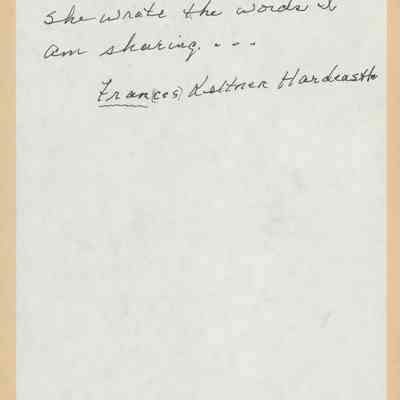 She wrote the words I
am sharing. . . .
Fran(ces) Keltner Hardcastle